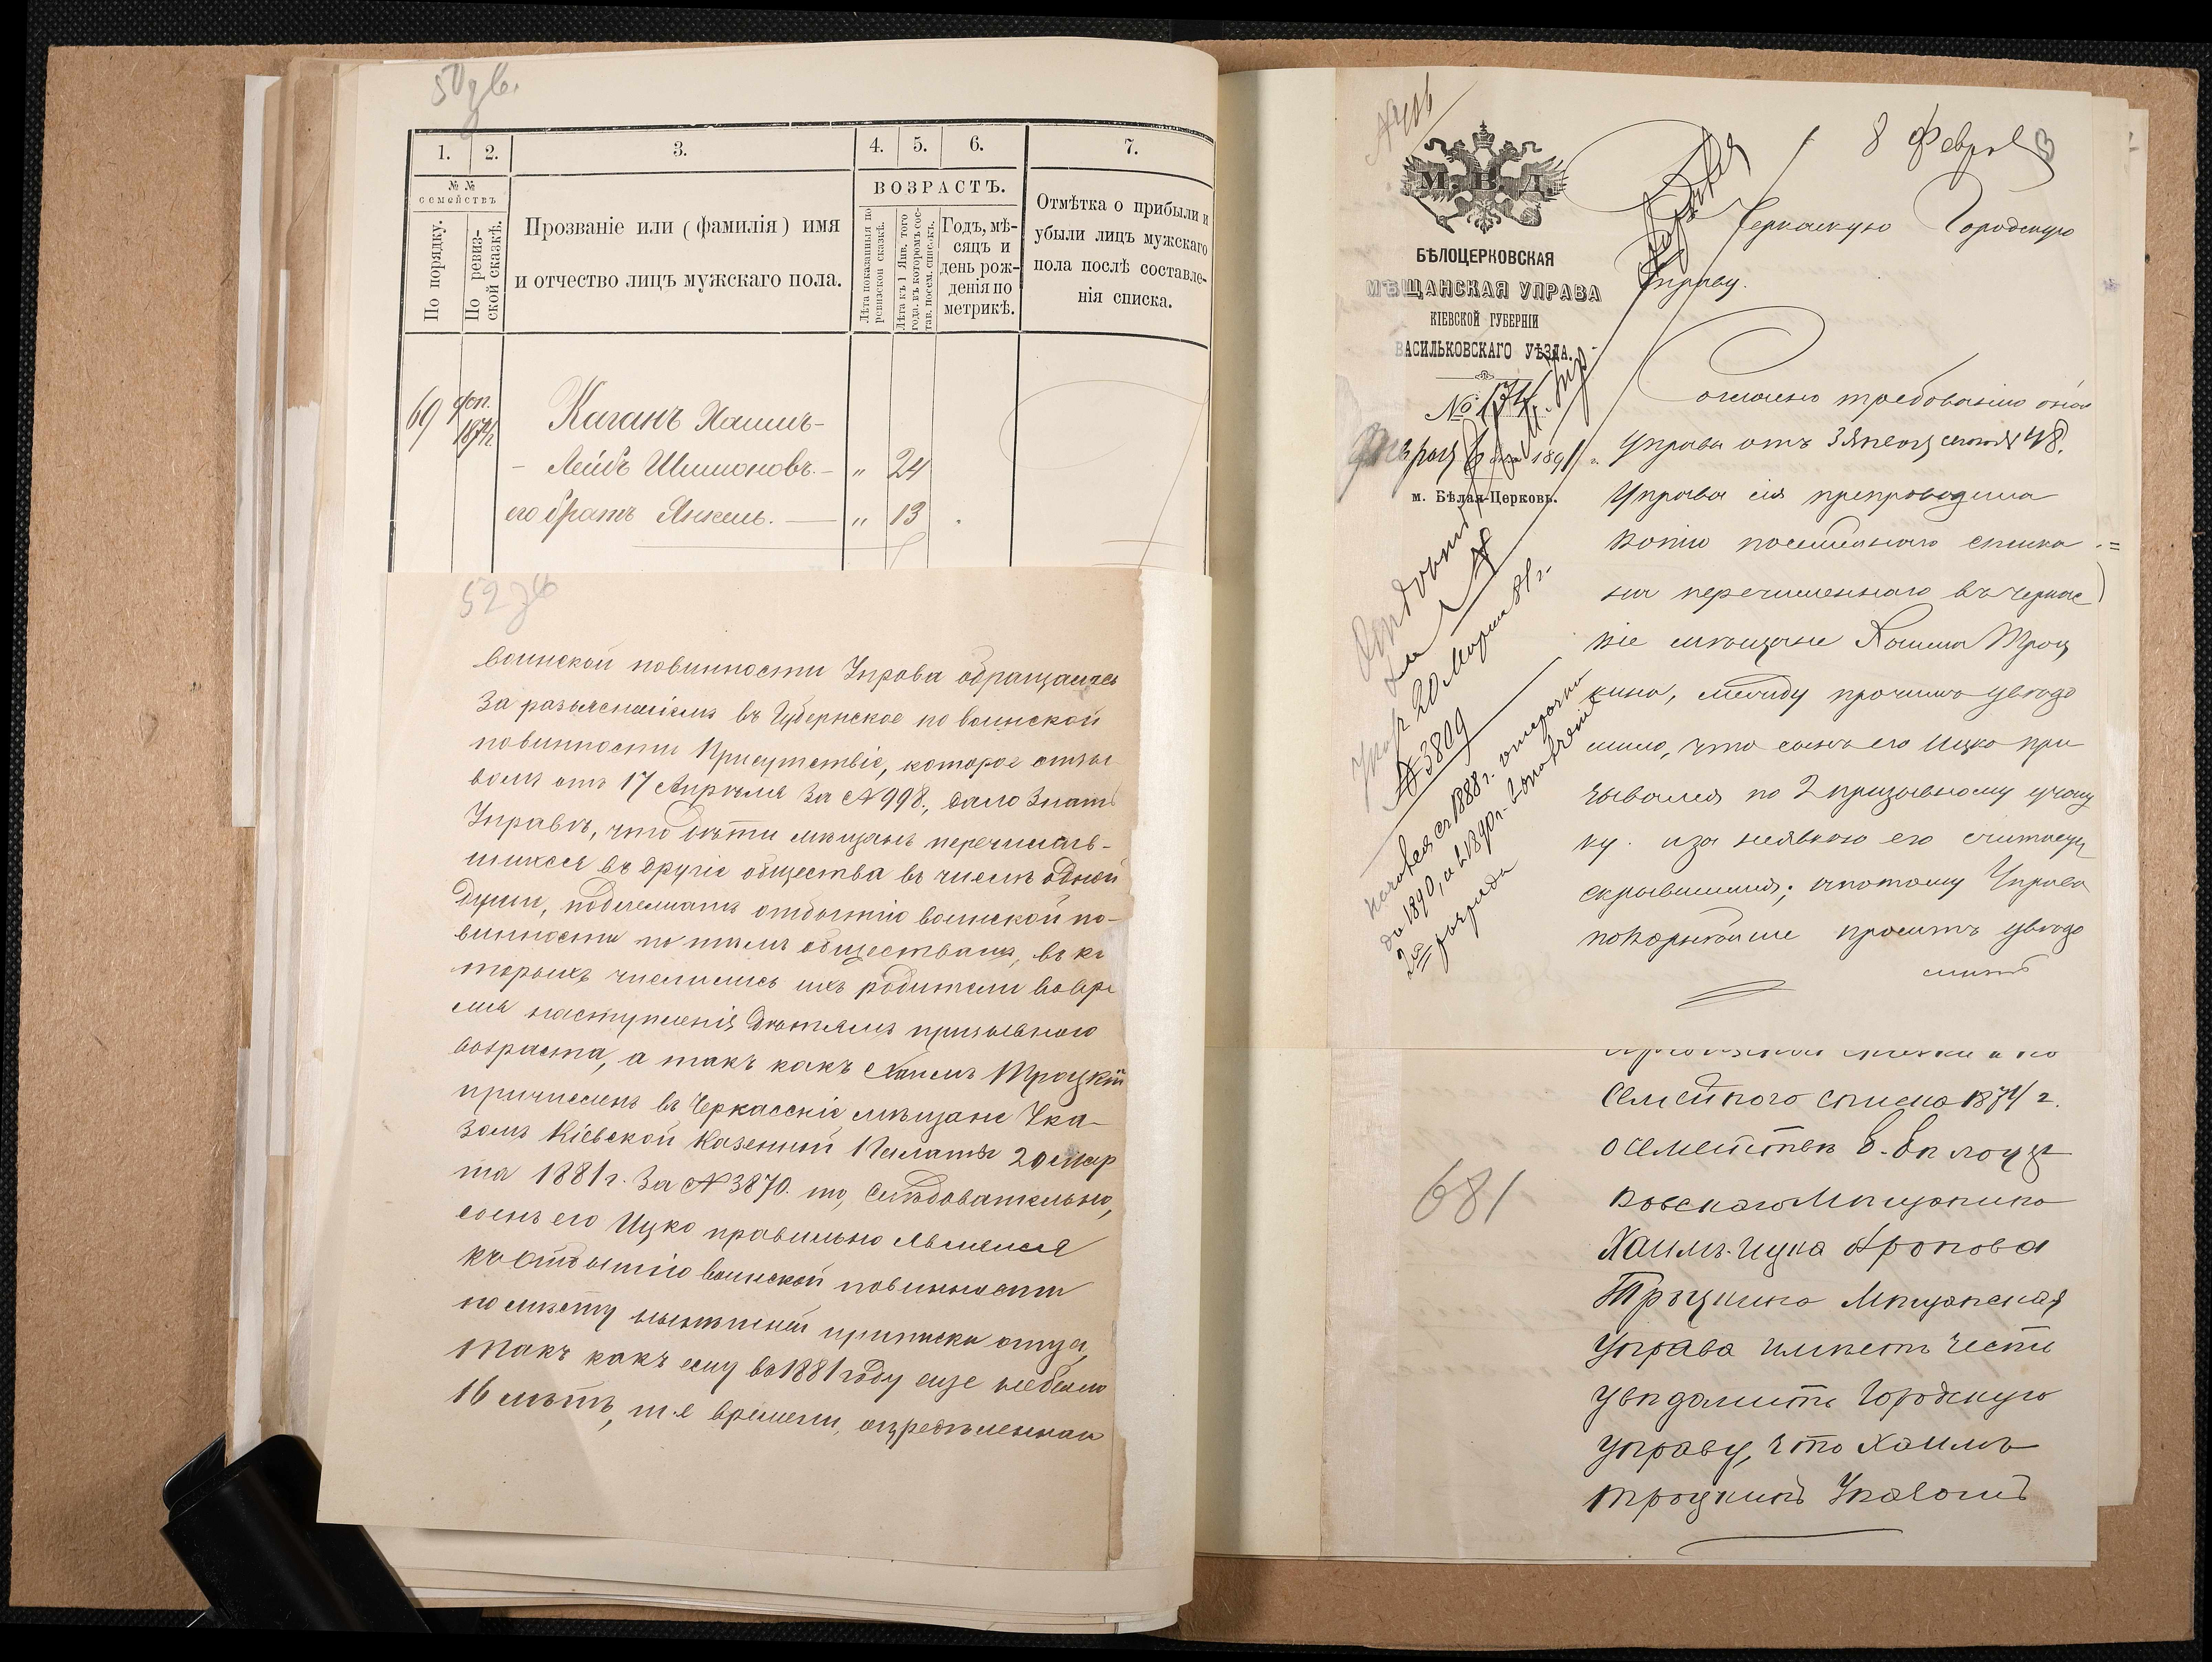 50 зв.
1. 2. 3. 4. 5. 6. 7.
№ № семействъ
По порядку.
По ревизской сказкѣ.
Прозваніе или (фамилія) имя
и отчество лицъ мужскаго пола.
ВОЗРАСТЪ.
Лѣта показанныя по ревизской сказкѣ.
Лѣта къ 1 Янв. того года, въ которомъ состав. посем. спис-къ.
Годъ, мѣ-
сяцъ и
день рож-
денія по
метрикѣ.
Отмѣтка о прибыли и
убыли лицъ мужскаго
пола послѣ составле-
нія списка.
69 доп. 1874 Каганъ Хаимъ-
- Лейбъ Шимоновъ. - " 24
его братъ Янкель. — " 13
52 зв
воинской повинности Управа обращалась
за разъясненіемъ въ Губернское по воинской
повинности Присутствіе, которое отзы-
вомъ отъ 17 Апрѣля за № 998., дало знать
Управѣ, что дѣти мѣщанъ перечислив-
шихся въ другіе общества въ числѣ одной
души, подлежатъ отбытію воинской по-
винности по тѣмъ обществамъ, въ ко
торыхъ числились ихъ родители во вре
мя наступленія дѣтямъ призывного
возраста, а такъ какъ Хаимъ Троцкій
причисленъ въ Черкасскіе мѣщане Ука-
зомъ Кіевской Казенной Палаты 20 мар
та 1881 г. за № 3870. то, слѣдовательно,
сынъ его Ицко правильно явился
къ отбытію воинской повинности
по мѣсту нынѣшней приписки отца,
такъ какъ ему въ 1881 году еще не было
16 лѣтъ, т.е времени, опредѣленнаго
8 Февраля
М. В. Д.
БѢЛОЦЕРКОВСКАЯ
МѢЩАНСКАЯ УПРАВА
КІЕВСКОЙ ГУБЕРНІИ
ВАСИЛЬКОВСКАГО УѢЗДА.
№ 174
Февраля 6 дня 1891 г.
м. Бѣлая-Церковь.
Черкаскую Городскую
Управу.
Согласно требованію оной
Управы отъ 3 Января 48.
Управа сія препроводила
копію посемейнаго списка
на перечисленнаго въ Черкас
кіе мѣщане Хаима Троц
кина, между прочимъ увѣдо
мила, что сынъ его Ицко при
зывался по 2 призывному участ
ку. и за неявкою его считается
скрывшимся; а потому Управа
покорнѣйше проситъ увѣдо
мить
Указ. 20 Марта 81 г.
№ 3809
до 1890, а въ 1890 г.
2го разряда
681
Семейного списка 1874 г.
о семействѣ б. Бѣлоцер
ковскаго Мѣщанина
Хаимъ-Ицка Аронова
Троцкина Мѣщанская
Управа имѣетъ честь
увѣдомить Городскую
управу, что Хаимъ
Троцкинъ Указомъ